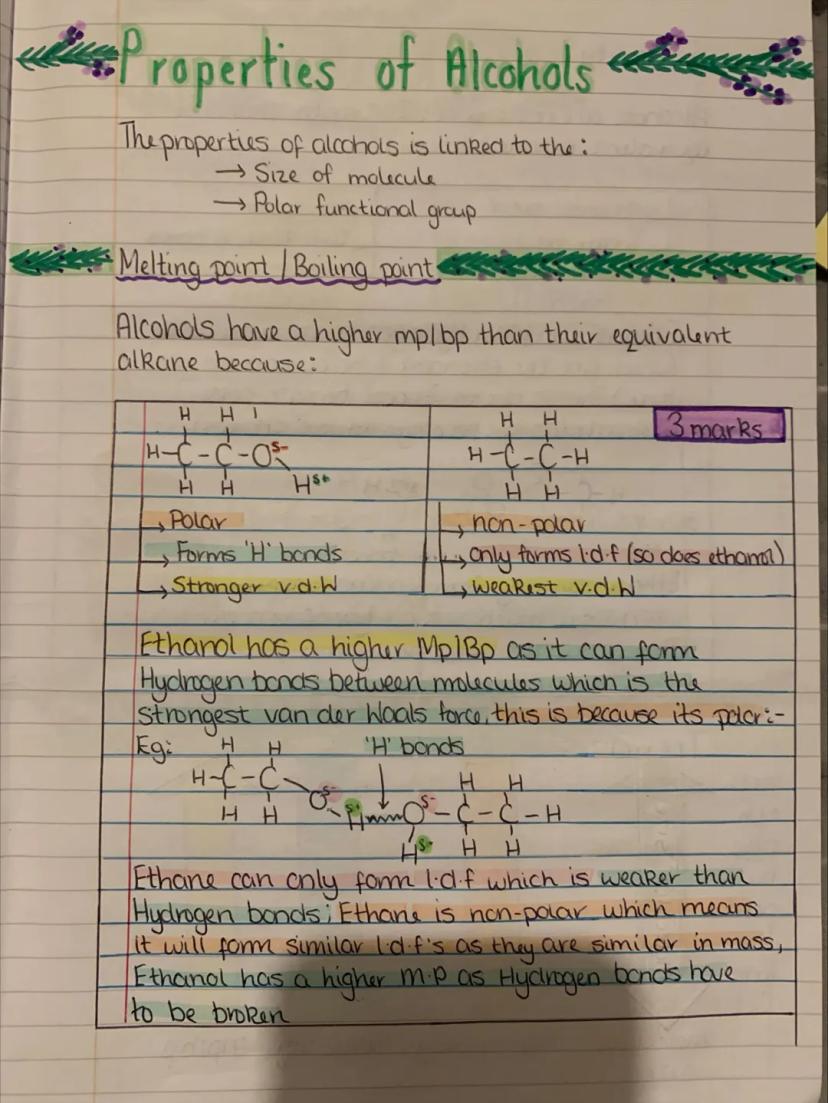 Properties of Alcohols
The properties of alcohols is linked to the:
→ Size of molecule
→ Polar functional group
Melting point / Boiling point
Alcohols have a higher mp/bp than their equivalent
alkane because:
3 marks
H H
H-C-C-Oδ-
H H Hδ+
H H
H-C-C-H
H H
↳ Polar
↳ Forms 'H' bonds
↳ Stronger v.d.W
↳ non-polar
↳ only forms l.d.f (so does ethanol)
↳ weakest v.d.W
Ethanol has a higher Mp/Bp as it can form
Hydrogen bonds between molecules which is the
strongest van der Waals force, this is because its polar:-
Eg: H H 'H' bonds
H-C-C H H
H H Oδ- Hδ+ Oδ- -C-C-H
Hδ+ H H
Ethane can only form l.d.f which is weaker than
Hydrogen bonds; Ethane is non-polar which means
it will form similar l.d.f's as they are similar in mass,
Ethanol has a higher m.p as Hydrogen bonds have
to be broken